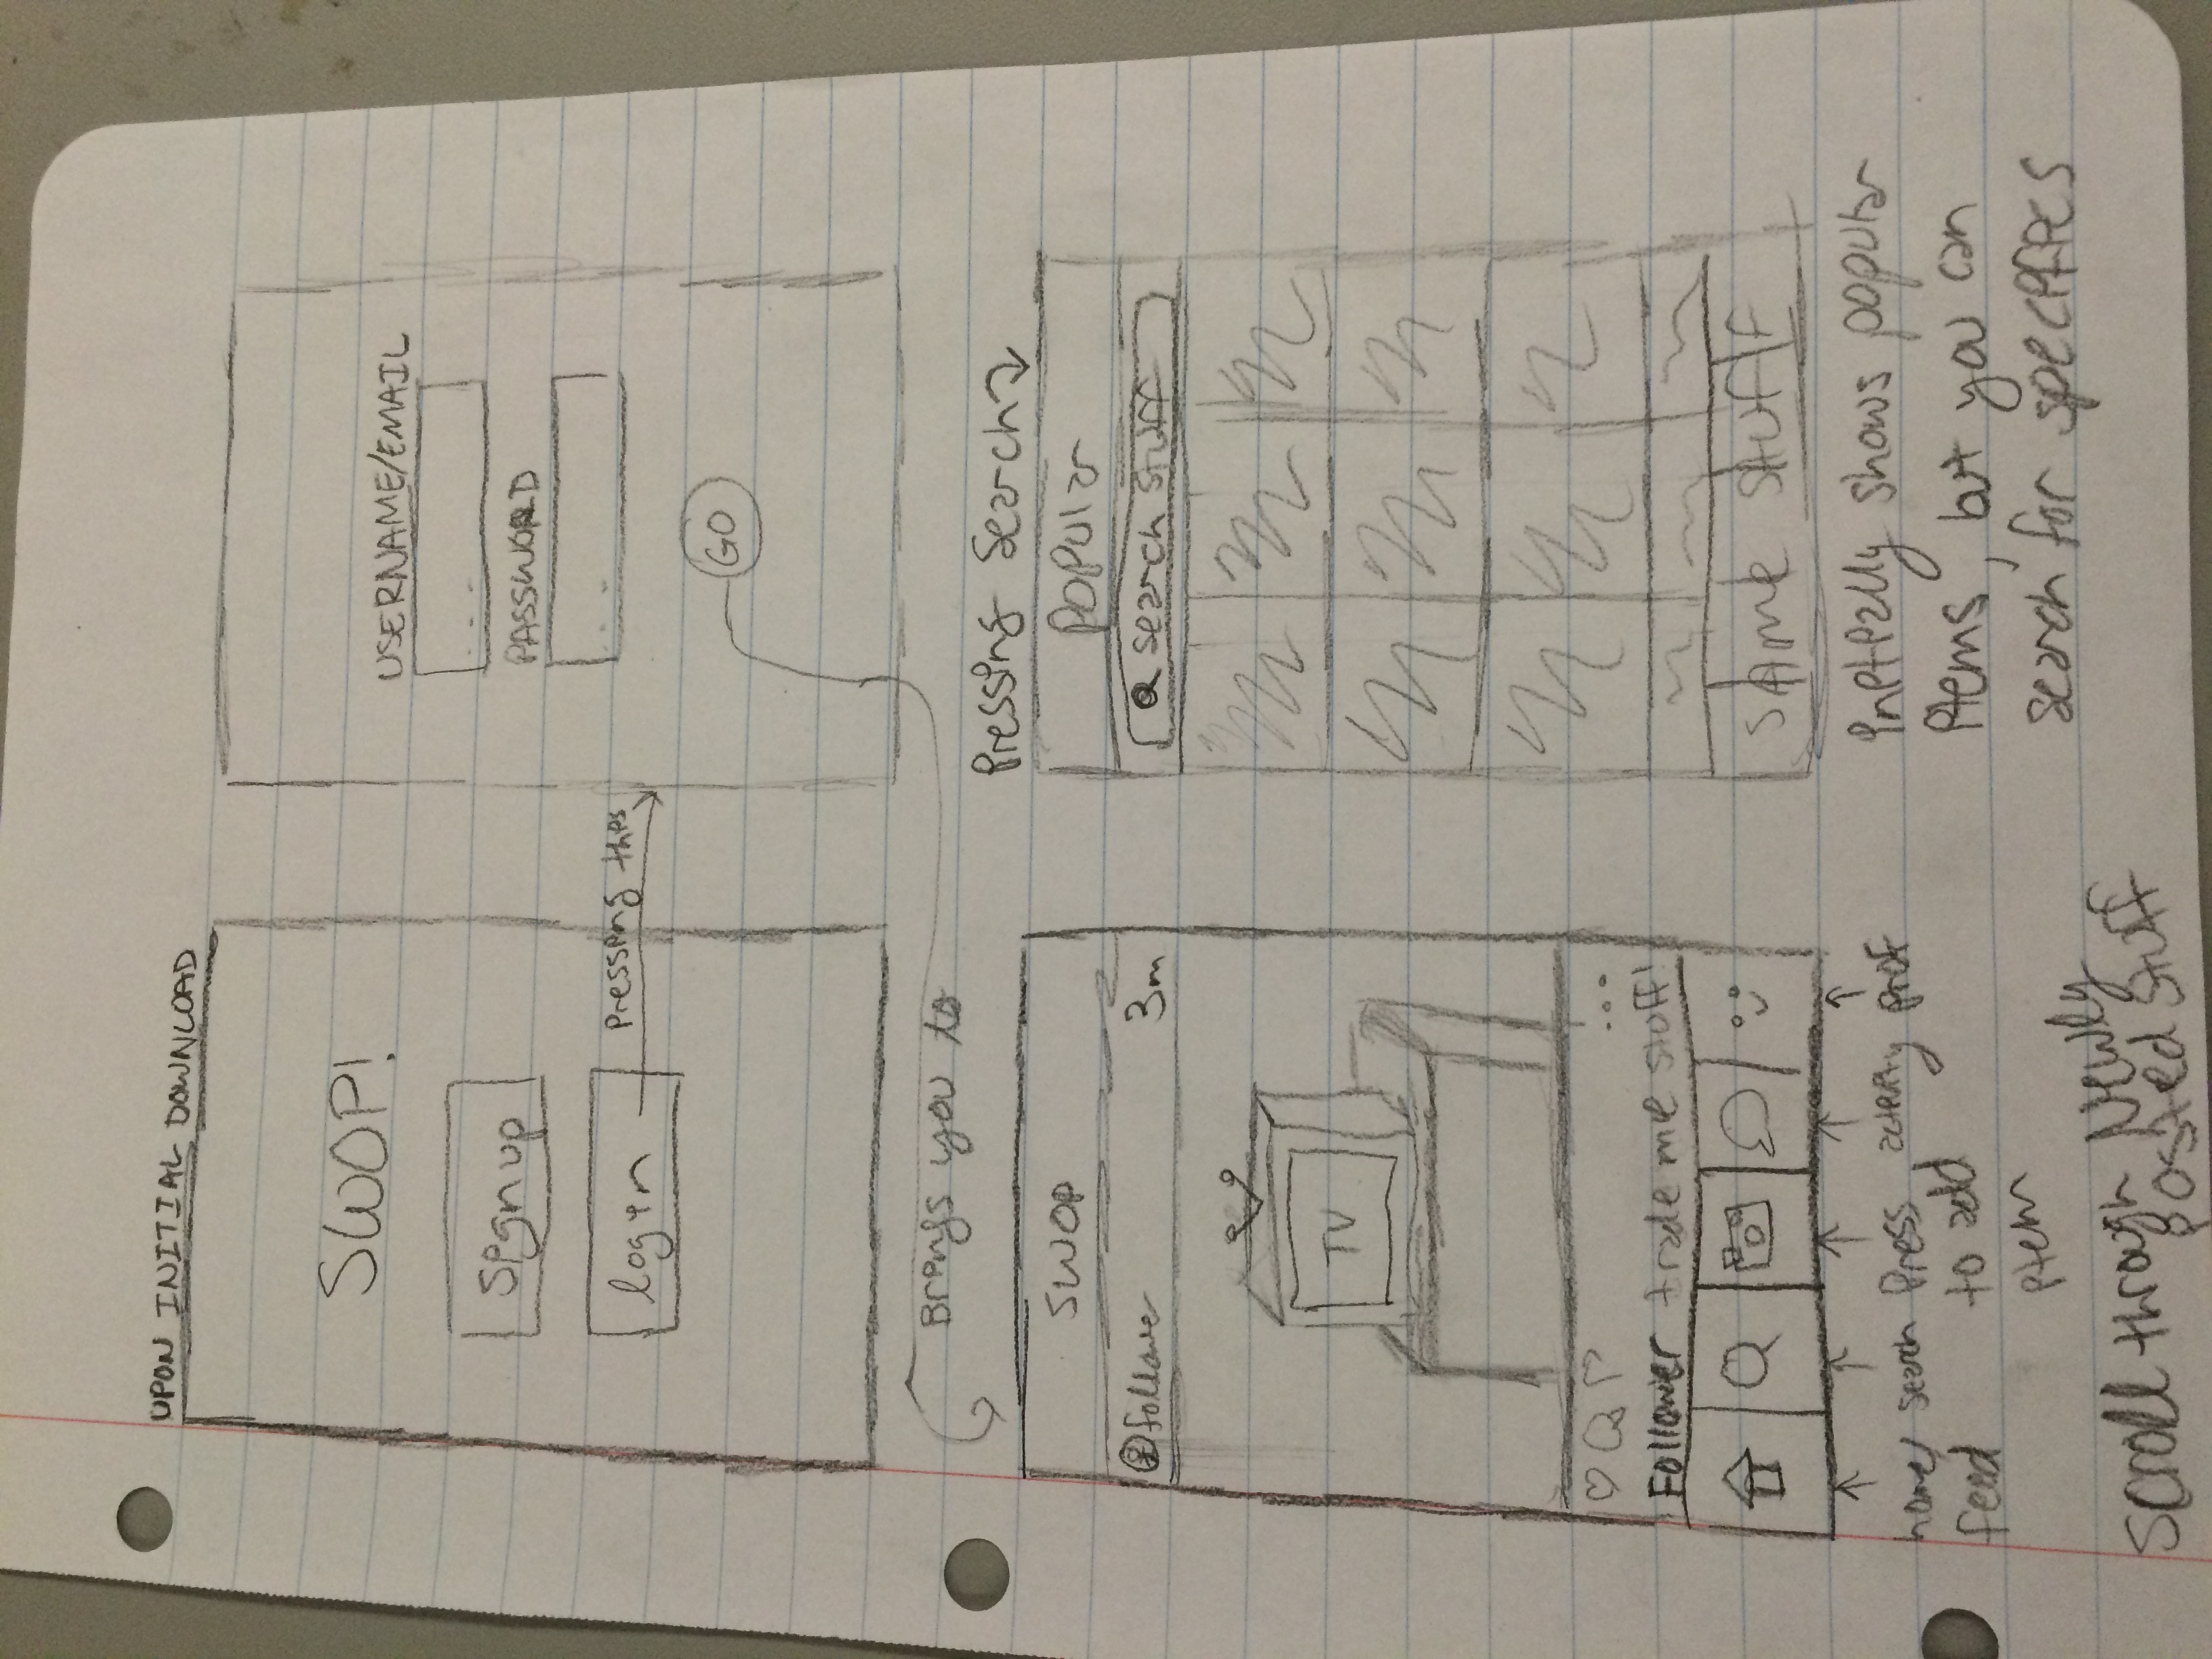 UPON INITIAL DOWNLOAD
SWOP!
sign up
login
pressing this
USERNAME/EMAIL
...
PASSWORD
...
GO
Brings you to
SWOP
follower 3m
TV
...
Follower trade me stuff!
home/
feed
search
Press
to add
item
activity
prof
scroll through Newly
posted stuff
Pressing Search
Popular
search stuff
SAme stuff
initially shows popular
items, but you can
search for specifics